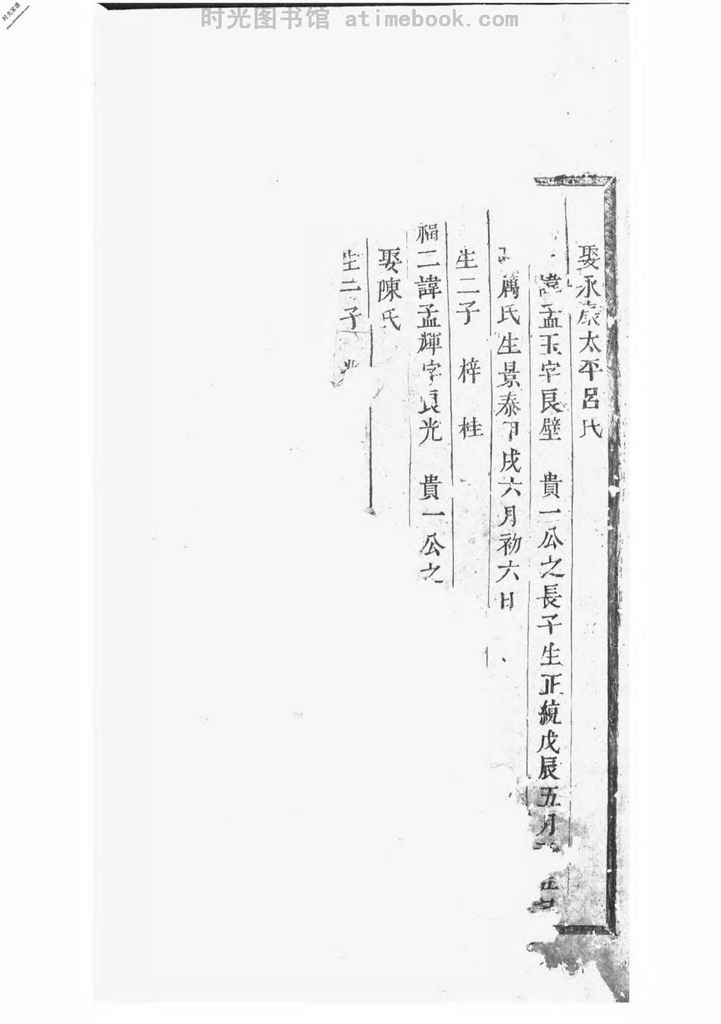 时光图书馆 atimebook.com
娶永康太平呂氏
諱孟玉字良璧 貴一公之長子生正統戊辰五月
厲氏生景泰甲戌六月初六日
生二子 梓 桂
福二諱孟輝字良光 貴一公之
娶陳氏
生二子